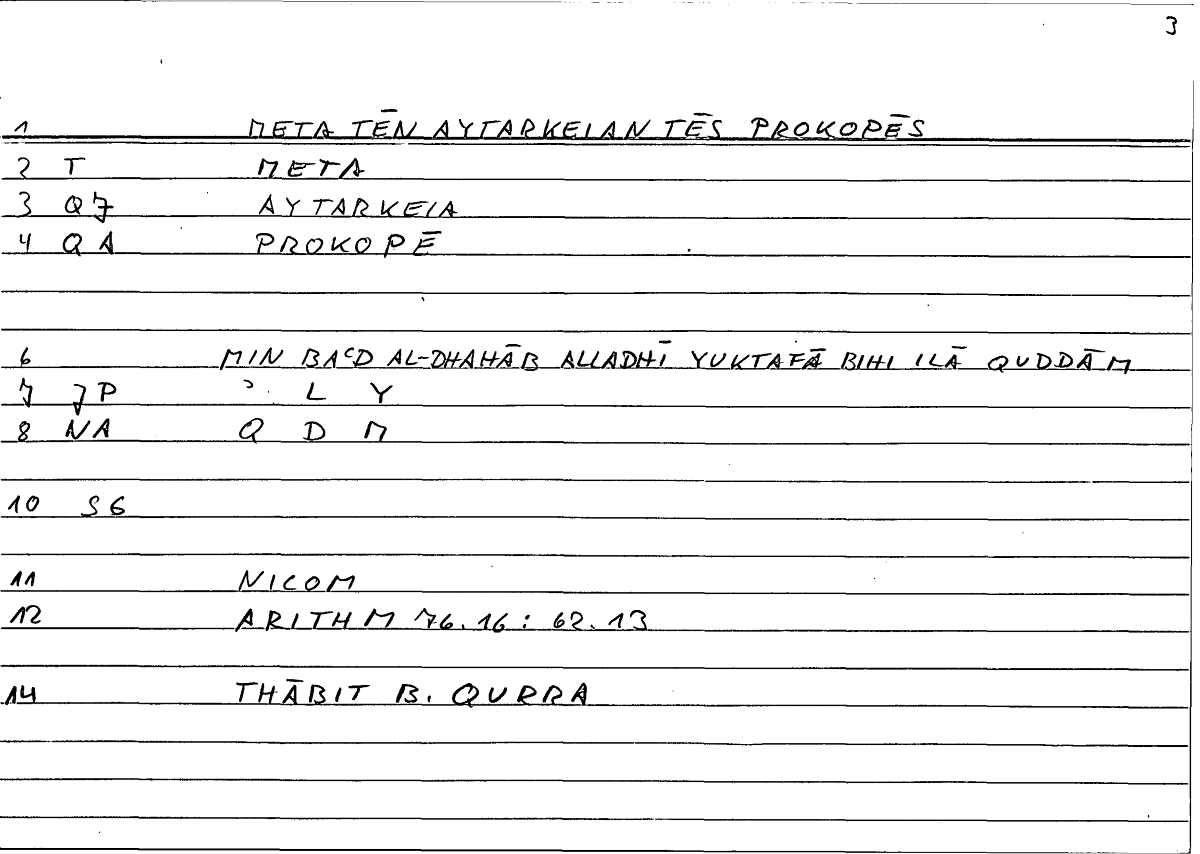 3
1 META TĒN AYTARKEIAN TĒS PROKOPĒS
2 T META
3 Q7 AYTARKEIA
4 QA PROKOPĒ
6 MIN BAʿD AL-DHAHĀB ALLADHĪ YUKTAFĀ BIHI ILĀ QUDDĀM
7 JP ʾ L Y
8 NA Q D M
10 S6
11 NICOM
12 ARITHM 76.16: 62.13
14 THĀBIT B. QURRA